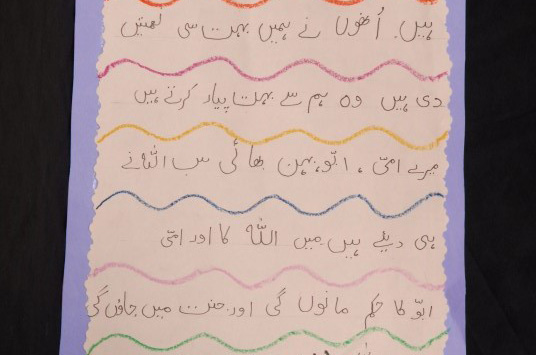 ہیں۔ اُنھوں نے ہمیں بہت سی نعمتیں
دی ہیں وہ ہم سے بہت پیار کرتے ہیں
میرے امّی، ابّو، بہن بھائی سب اللہ نے
ہی دیئے ہیں۔ میں اللہ کا اور امّی
ابّو کا حکم مانوں گی اور جنت میں جاؤں گی